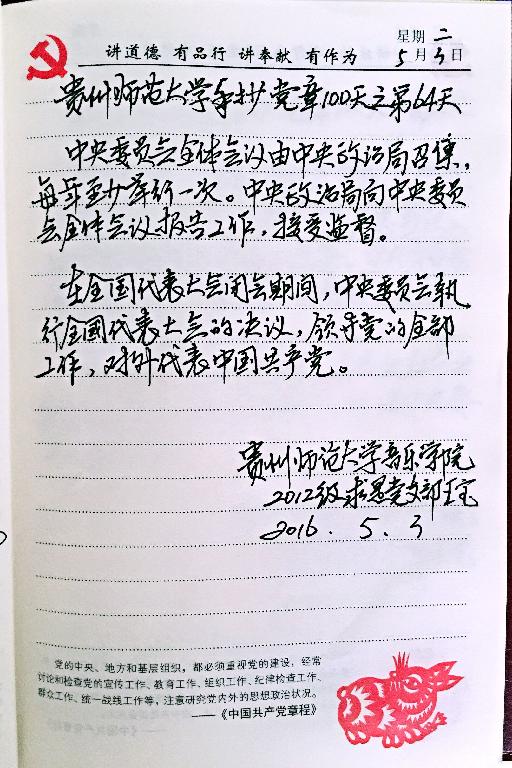 星期 二
讲道德 有品行 讲奉献 有作为 5月3日
贵州师范大学手抄党章100天之第64天
中央委员会全体会议由中央政治局召集，
每年至少举行一次。中央政治局向中央委员
会全体会议报告工作，接受监督。
在全国代表大会闭会期间，中央委员会执
行全国代表大会的决议，领导党的全部
工作，对外代表中国共产党。
贵州师范大学音乐学院
2012级求思党支部王宝
2016.5.3
党的中央、地方和基层组织，都必须重视党的建设，经常
讨论和检查党的宣传工作、教育工作、组织工作、纪律检查工作、
群众工作、统一战线工作等，注意研究党内外的思想政治状况。
——《中国共产党章程》